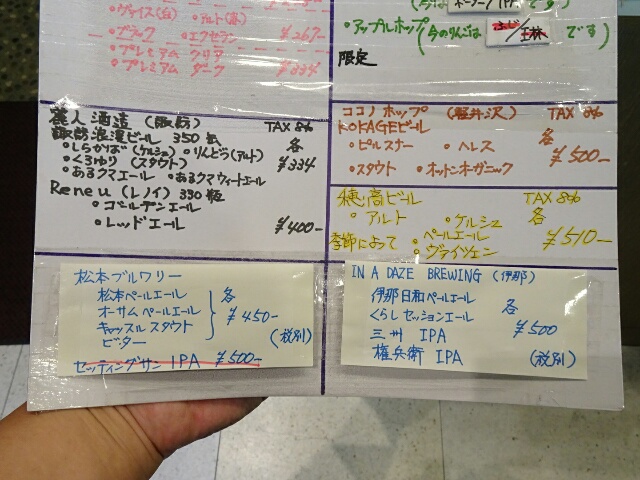 ・ヴァイス(白) ・アルト(赤)
・ブラック ・エクセラン ¥267-
・プレミアム クリア
・プレミアム ダーク ¥334
です)
・アップルホップ (今のりんごは ふじ/王林 です)
限定
麗人酒造 (諏訪) TAX 8%
諏訪浪漫ビール 350缶 各
・しらかば(ケルシュ) ・りんどう(アルト) ¥334
・くろゆり (スタウト)
・あるクマエール ・あるクマウィートエール
Reneu (レノイ) 330瓶
・ゴールデンエール
・レッドエール ¥400-
ココノホップ (軽井沢) TAX 8%
KOKAGEビール 各
・ピルスナー ・ヘレス ¥500-
・スタウト ・オットンオーガニック
穂高ビール TAX 8%
・アルト ・ケルシュ 各
季節によって ・ペールエール ¥510-
・ヴァイツェン
松本ブルワリー
松本ペールエール 各
オーサムペールエール ¥450-
キャッスルスタウト
ビター (税別)
セッティングサン IPA ¥500-
IN A DAZE BREWING (伊那)
伊那日和ペールエール 各
くらしセッションエール ¥500
三州 IPA
権兵衛 IPA (税別)